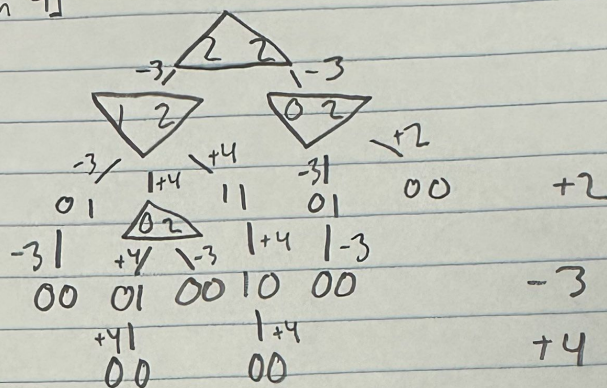 2 2
-3 -3
1 2 0 2
-3 +4 +4 -3 +2
01 02 11 01 00 +2
-3 +4 -3 +4 -3
00 01 00 10 00 -3
+4 +4 +4
00 00